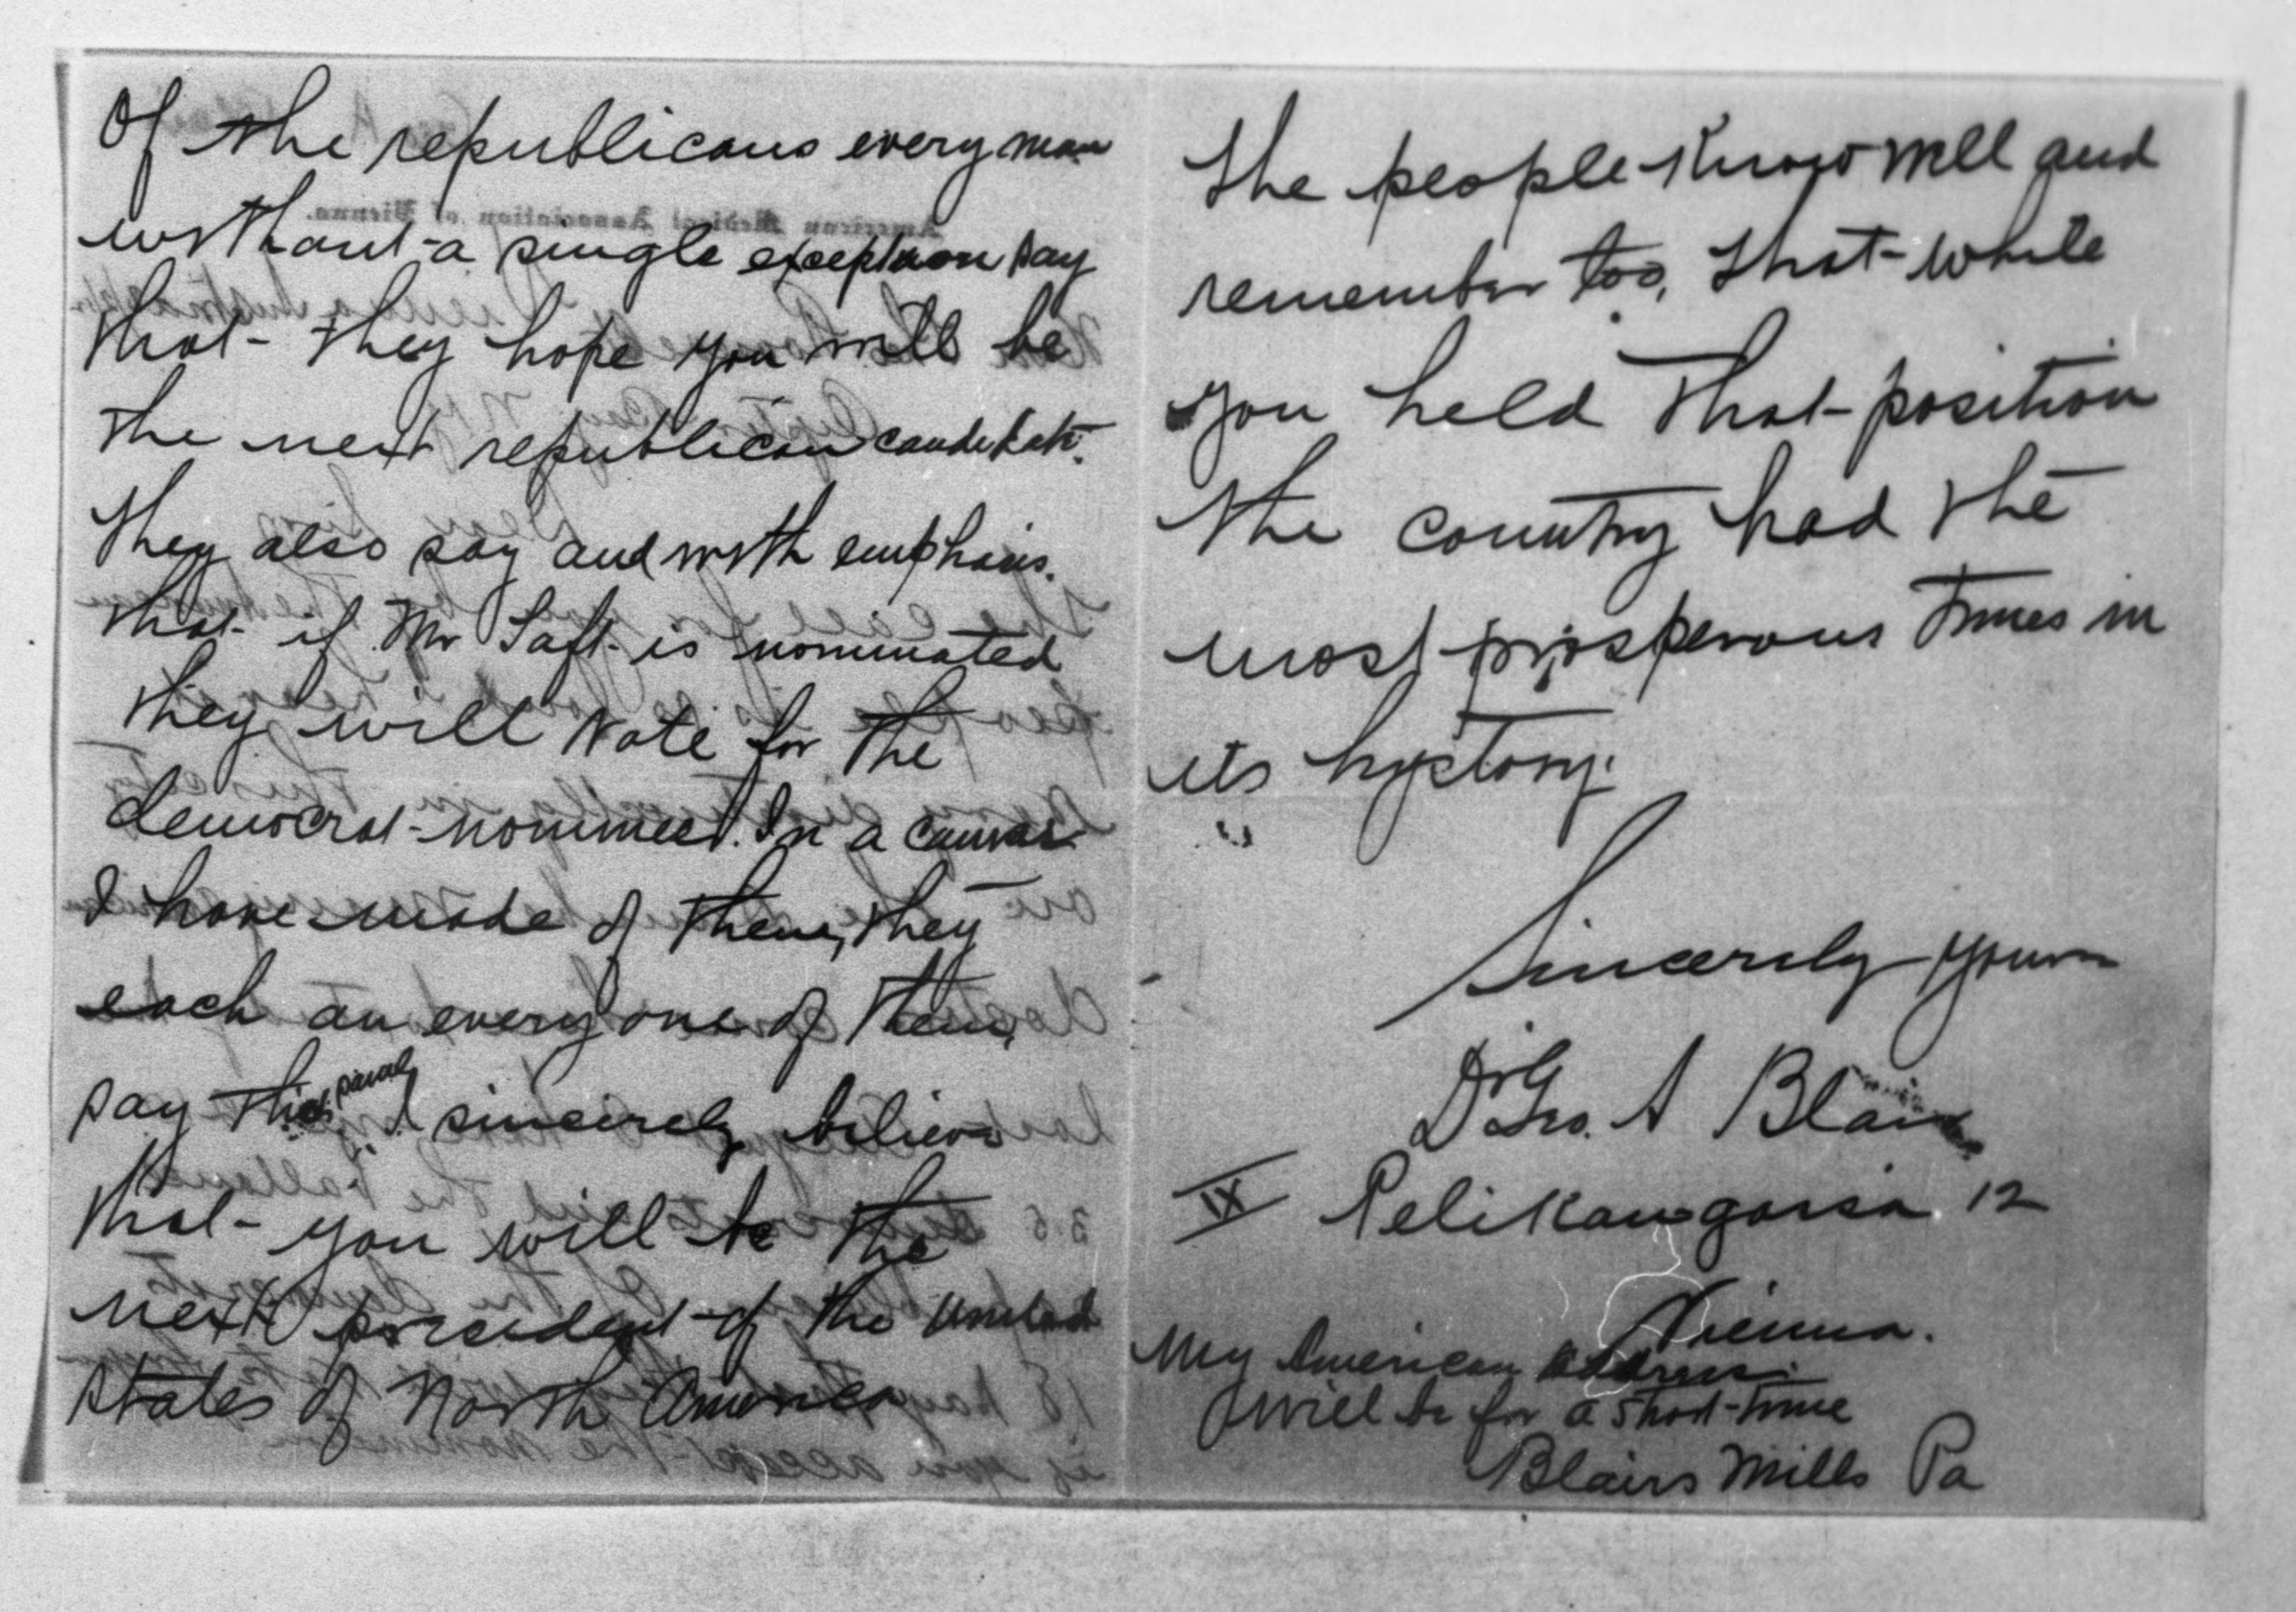 Of the republicans every man
without a single exception say
that they hope you will be
the next republican candidate.
They also say and with emphasis.
that if Mr Taft is nominated
they will vote for the
democrat nominee. In a canvas
I have made of them, they
each an every one of them,
say this. I sincerely believe
that you will be the
next president of the United
States of North America
the people know well and
remember too, that while
you held that position
the country had the
most prosperous times in
its hystory.
Sincerely yours
Dr Geo. A Blair
IX Pelikangassa 12
Vienna.
My American address
will be for a short time
Blairs Mills Pa
American Medical Association of Vienna.